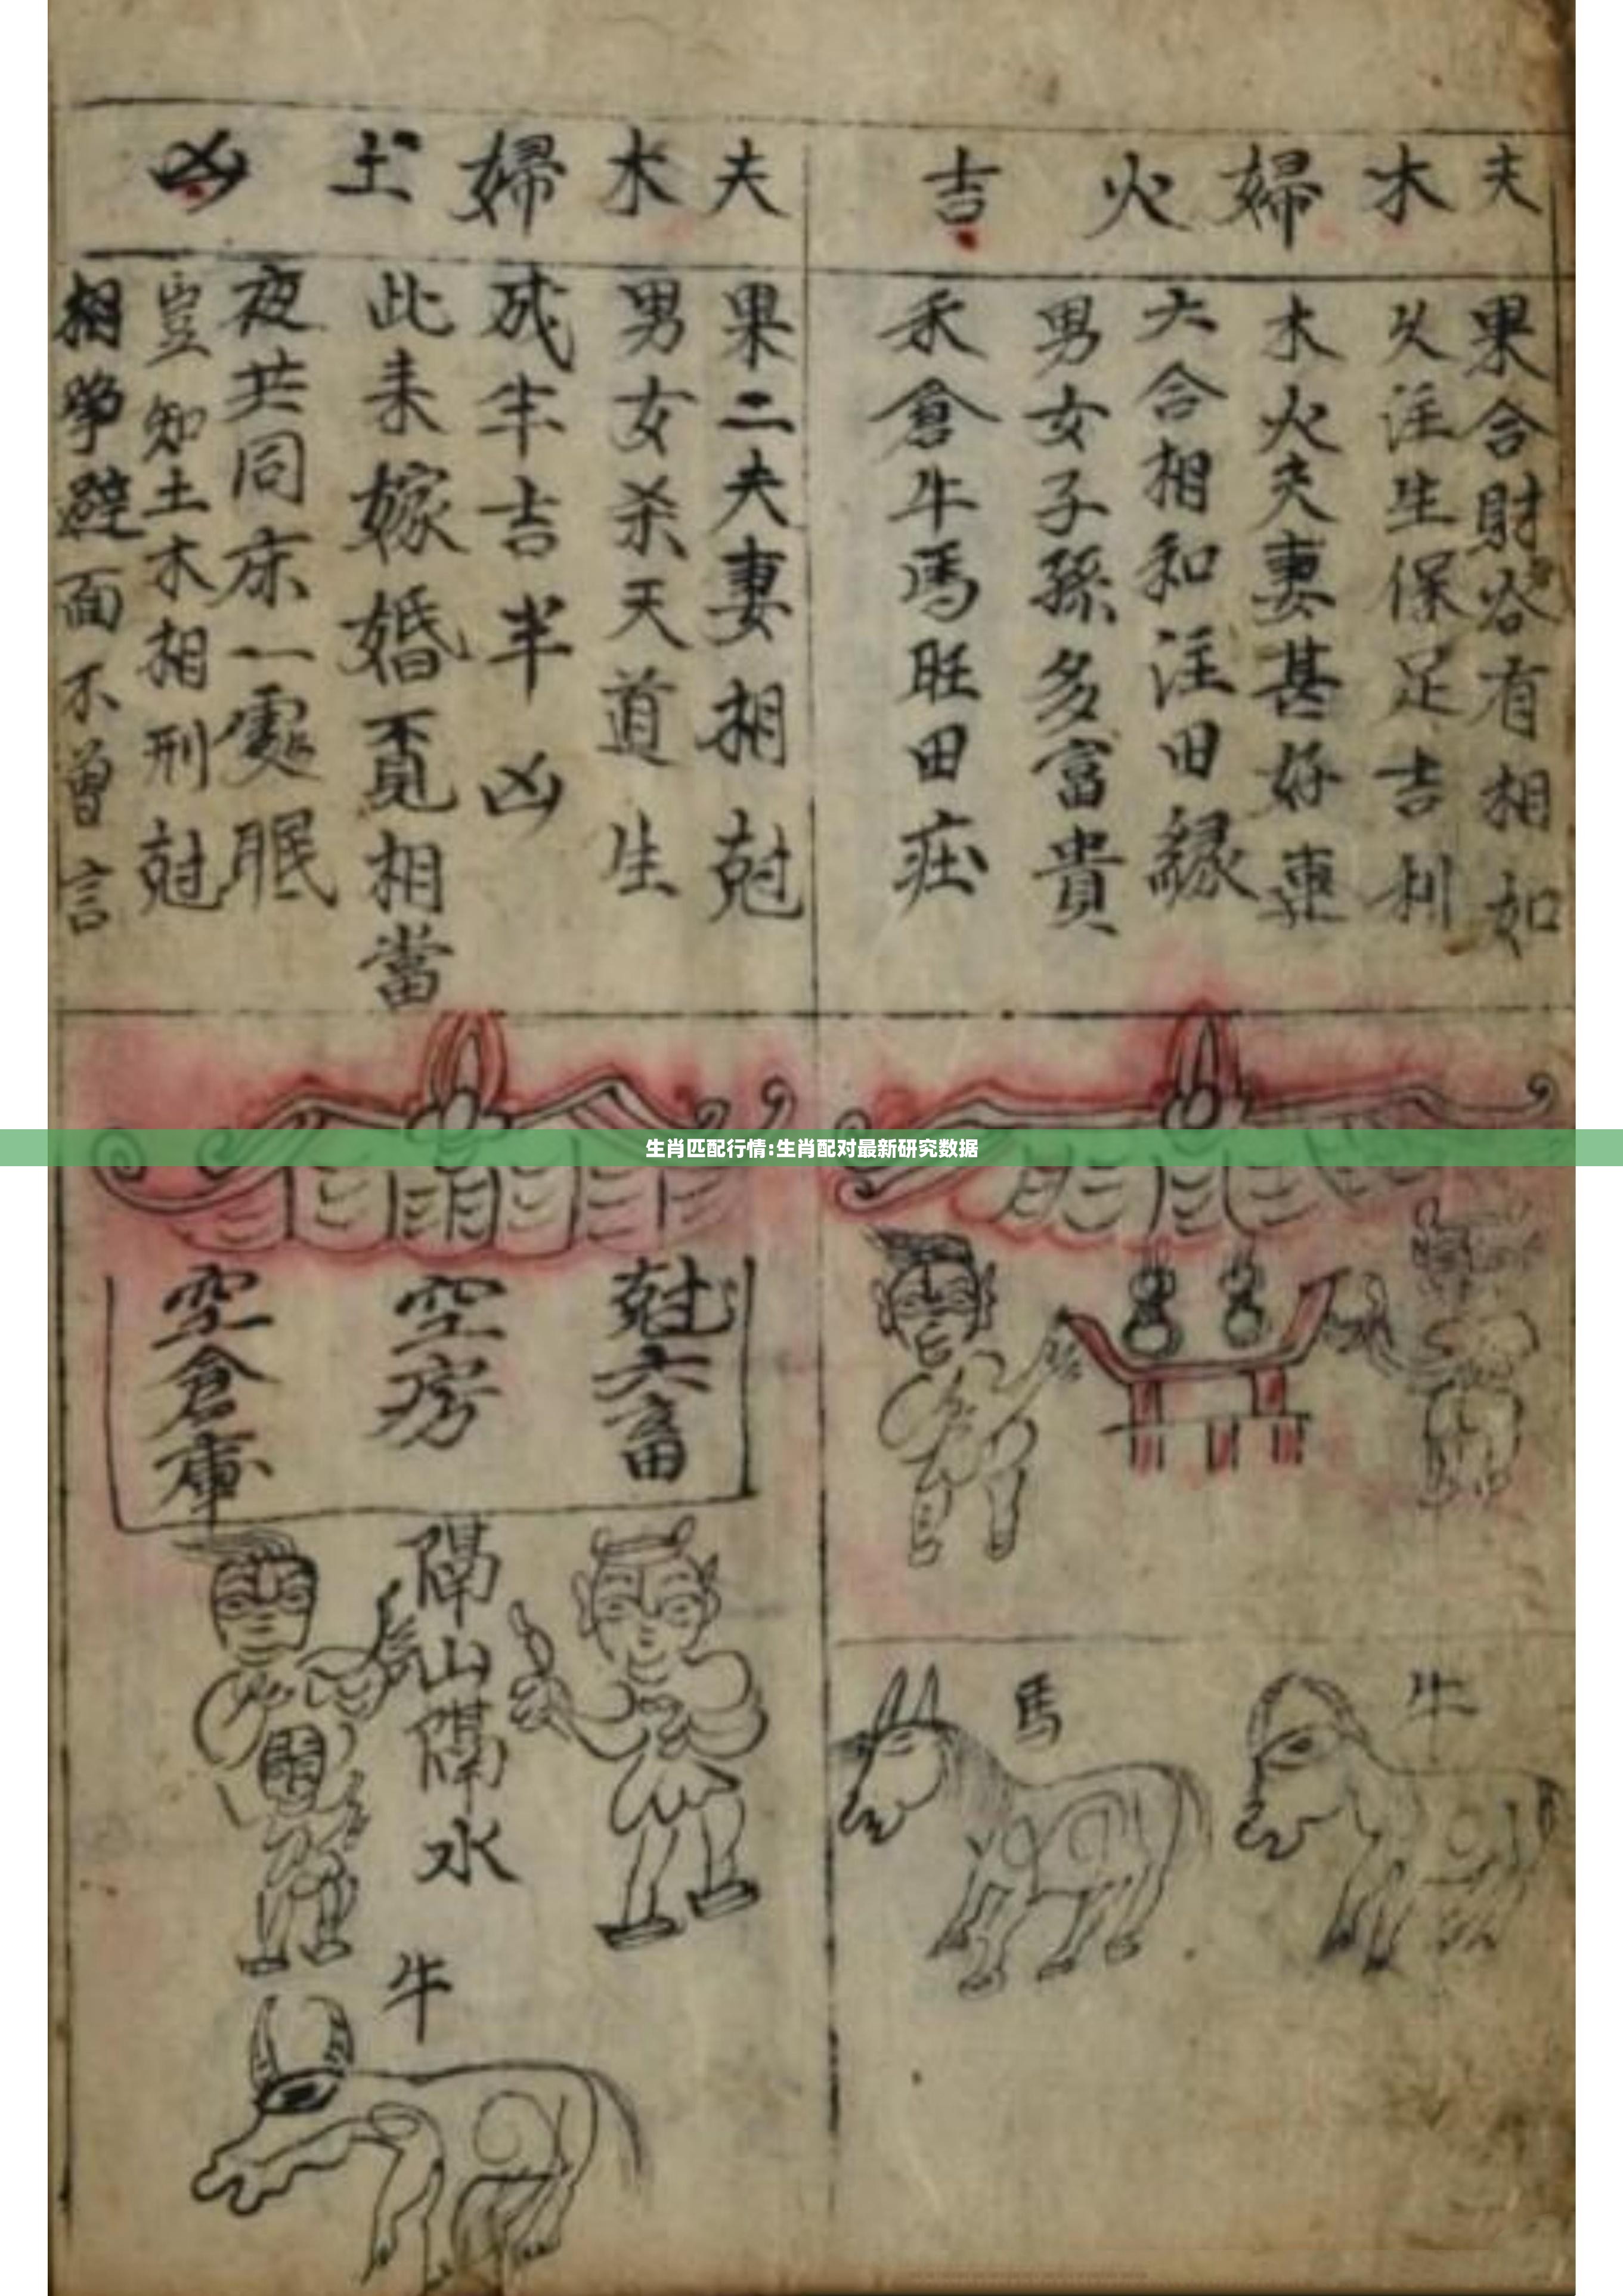 夫木婦火吉
果合財谷有相如
火注生保足吉利
木火夫妻甚好
六合相和注田緣
男女子孫多富貴
禾倉牛馬旺田庄
夫木婦土凶
果二夫妻相尅
男女杀天道生
成半吉半凶
此来嫁婚覔相當
夜共同床一處眠
豈知土木相刑尅
相爭避面不曾言
生肖匹配行情:生肖配对最新研究数据
馬
牛
尅六畜
空房
空倉庫
隔山隔水
牛